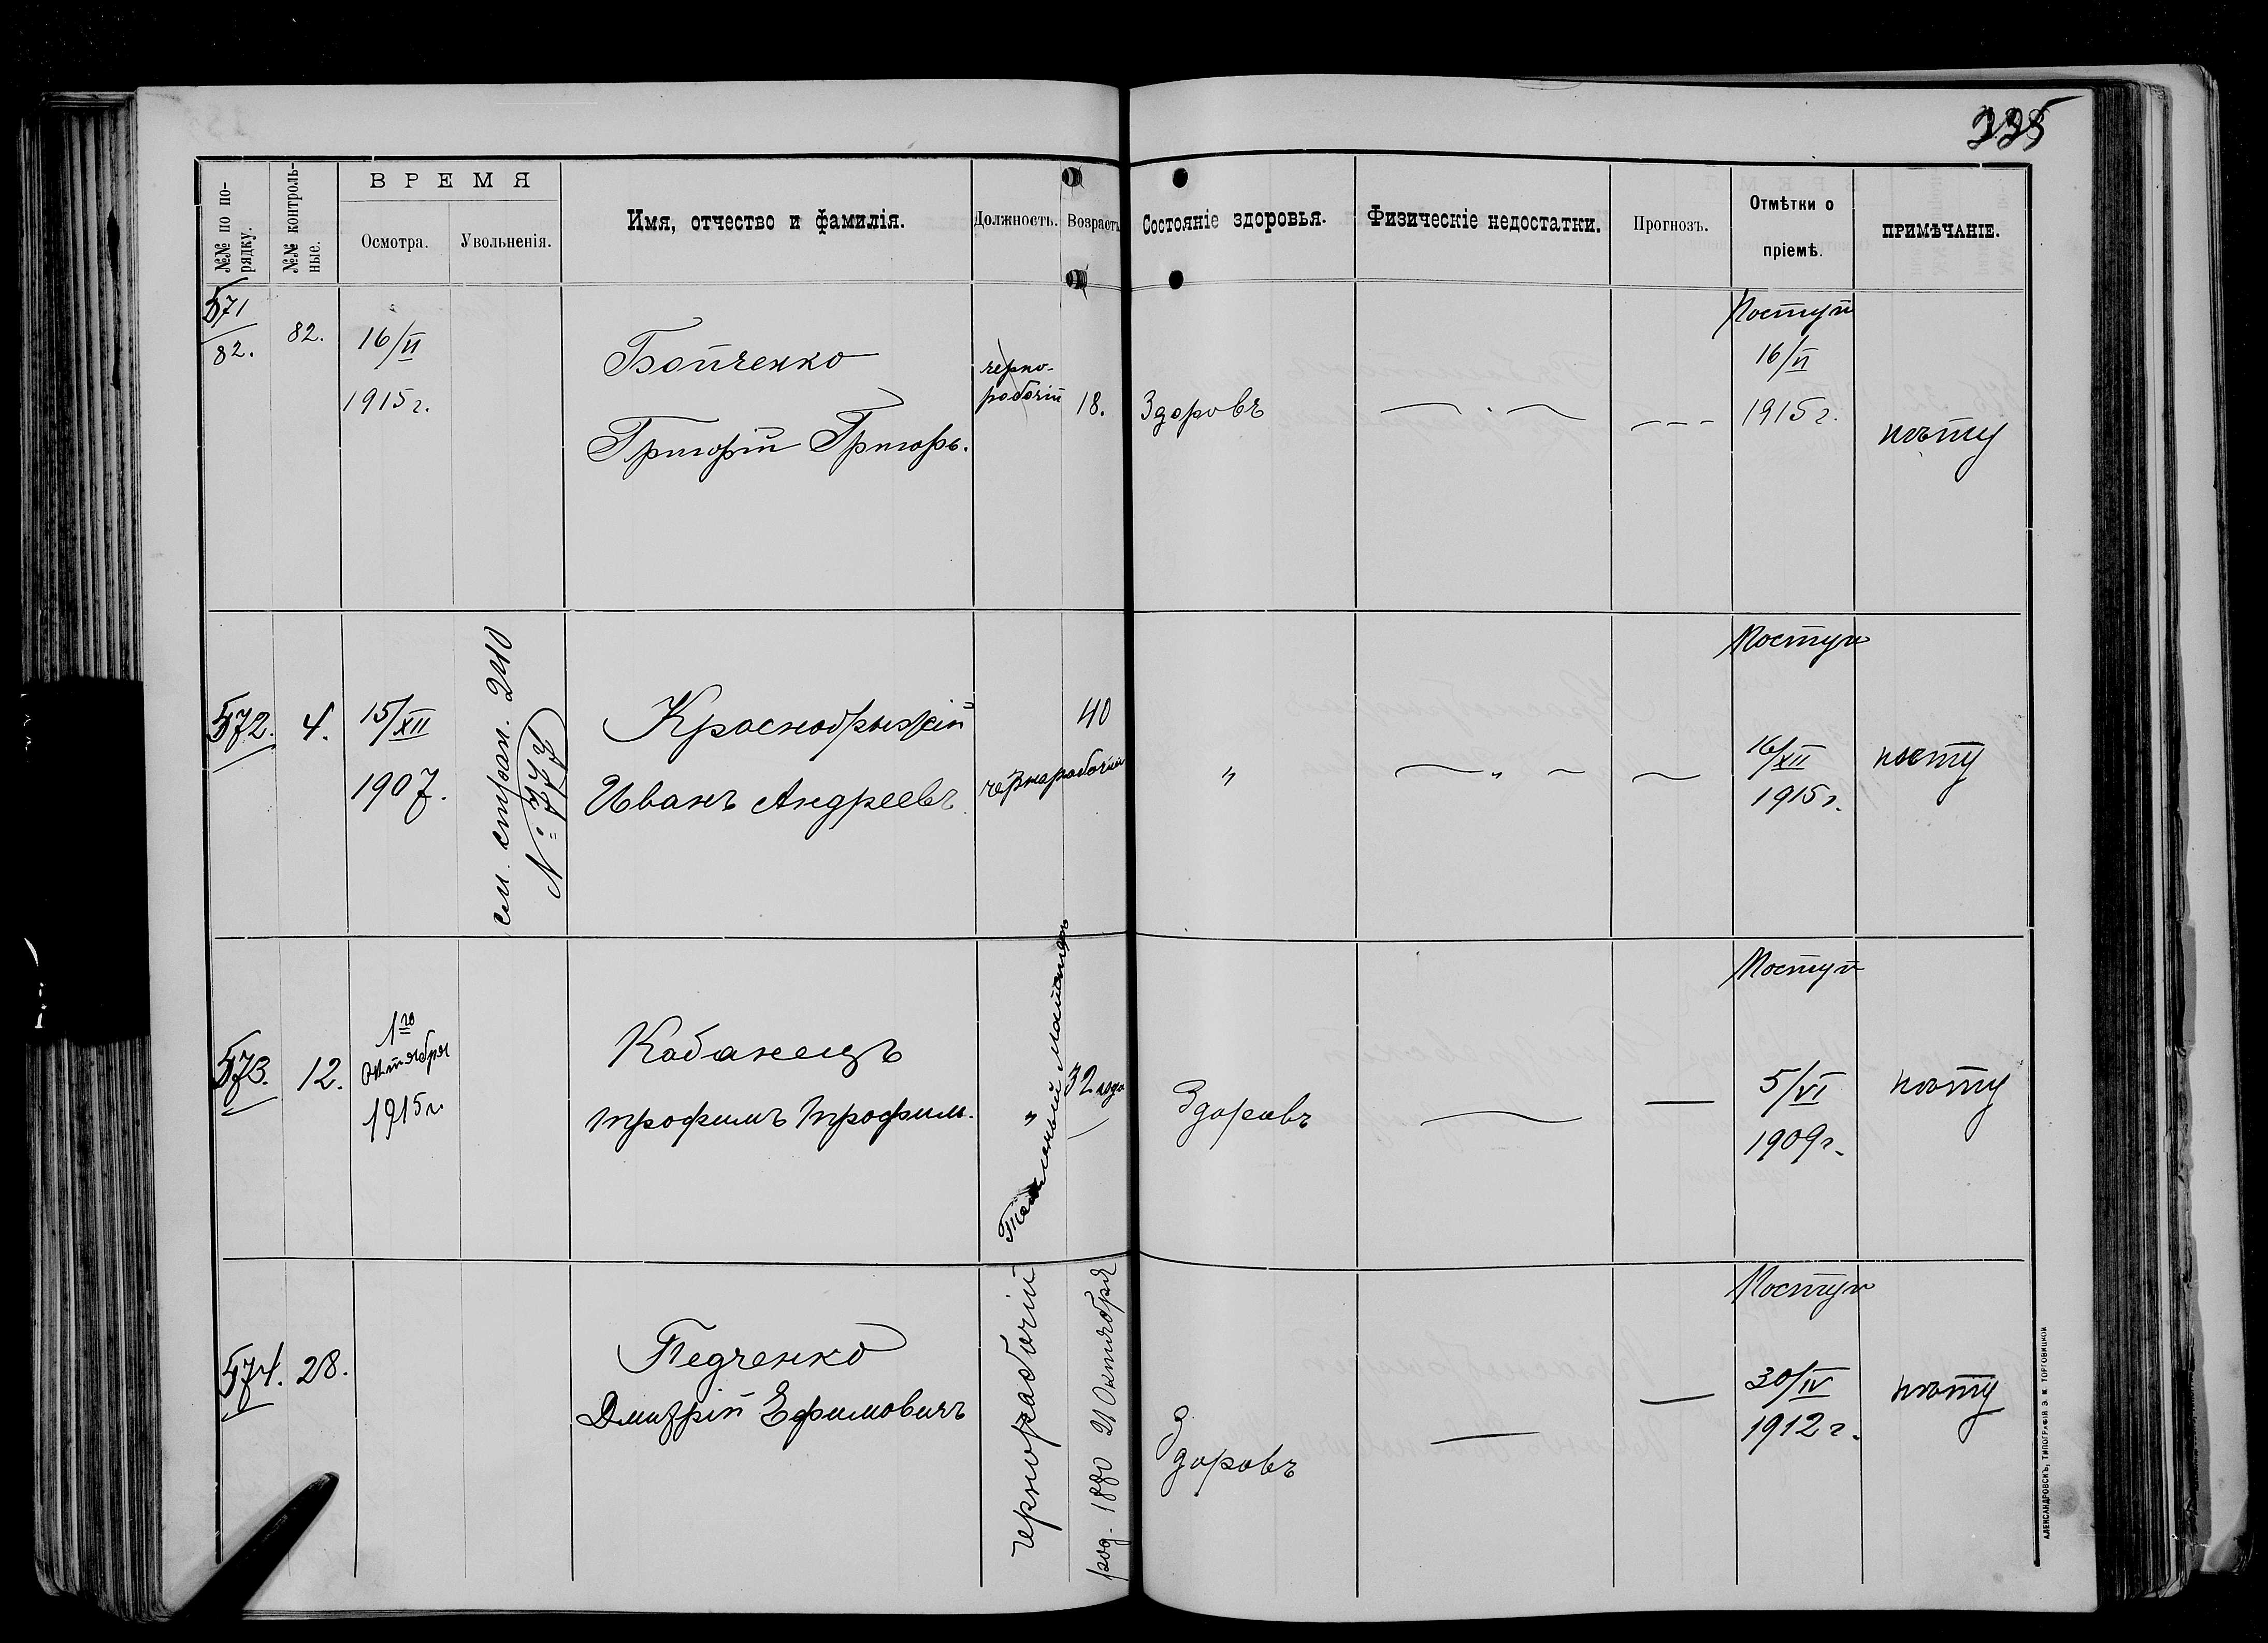 335
№№ по по-
рядку.
№№ контроль-
ные.
ВРЕМЯ
Осмотра.
Увольненія.
Имя, отчество и фамилія.
Должность.
Возрастъ
Состояніе здоровья.
Физическіе недостатки.
Прогнозъ.
Отмѣтки о
пріемѣ.
ПРИМѢЧАНІЕ.
571
82.
82.
16/VI
1915 г.
Бойченко
Григорій Григорь.
черно-
рабочій
18.
Здоровъ
Поступ
16/VI
1915 г.
нѣту
572.
4.
15/XII
1907.
см. стран. 240
№
Краснобрыжій
Иванъ Андреевъ
чернорабочій
40
"
"
Поступ
16/XII
1915 г.
нѣту
573.
12.
1го
Октября
1915 г.
Кабанецъ
Трофимъ Трофим.
"
32 года
Здоровъ
Поступ
5/VI
1909 г.
нѣту
574.
28.
Педченко
Дмитрій Ефимовичъ
Чернорабочій
род. 1880 21 Октября
Здоровъ
Поступ
30/IV
1912 г.
нѣту
АЛЕКСАНДРОВСКЪ, ТИПОГРАФІЯ Э. М. ТОРГОВИЦКОЙ